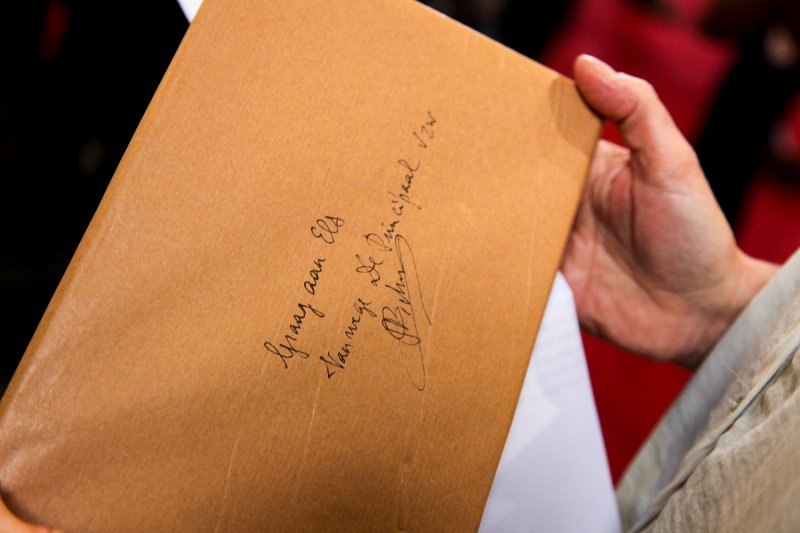 Graag aan Els
Vanwege De Principaal vzw